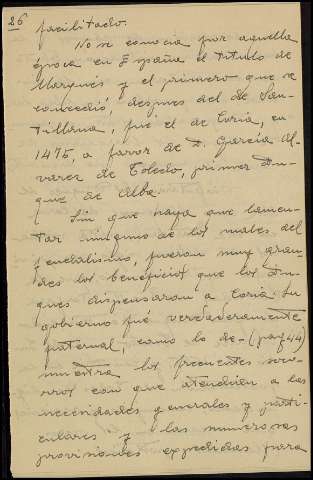 26
facilitado.
No se conocia por aquella
época en España el título de
Marqués y el primero que se
concedió, despues del de San-
tillana, fué el de Coria, en
1475, a favor de D. García Al-
varez de Toledo, primer Du-
que de Alba.
Sin que haya que lamen-
tar ninguno de los males del
feudalismo, fueron muy gran-
des los beneficios que los Du-
ques dispensaron a Coria. Su
gobierno fué verdaderamente
paternal, como lo de- (pag 44)
muestra los frecuentes soco-
rros con que atendian a las
necesidades generales y parti-
culares y las numerosas
provisiones expedidas para